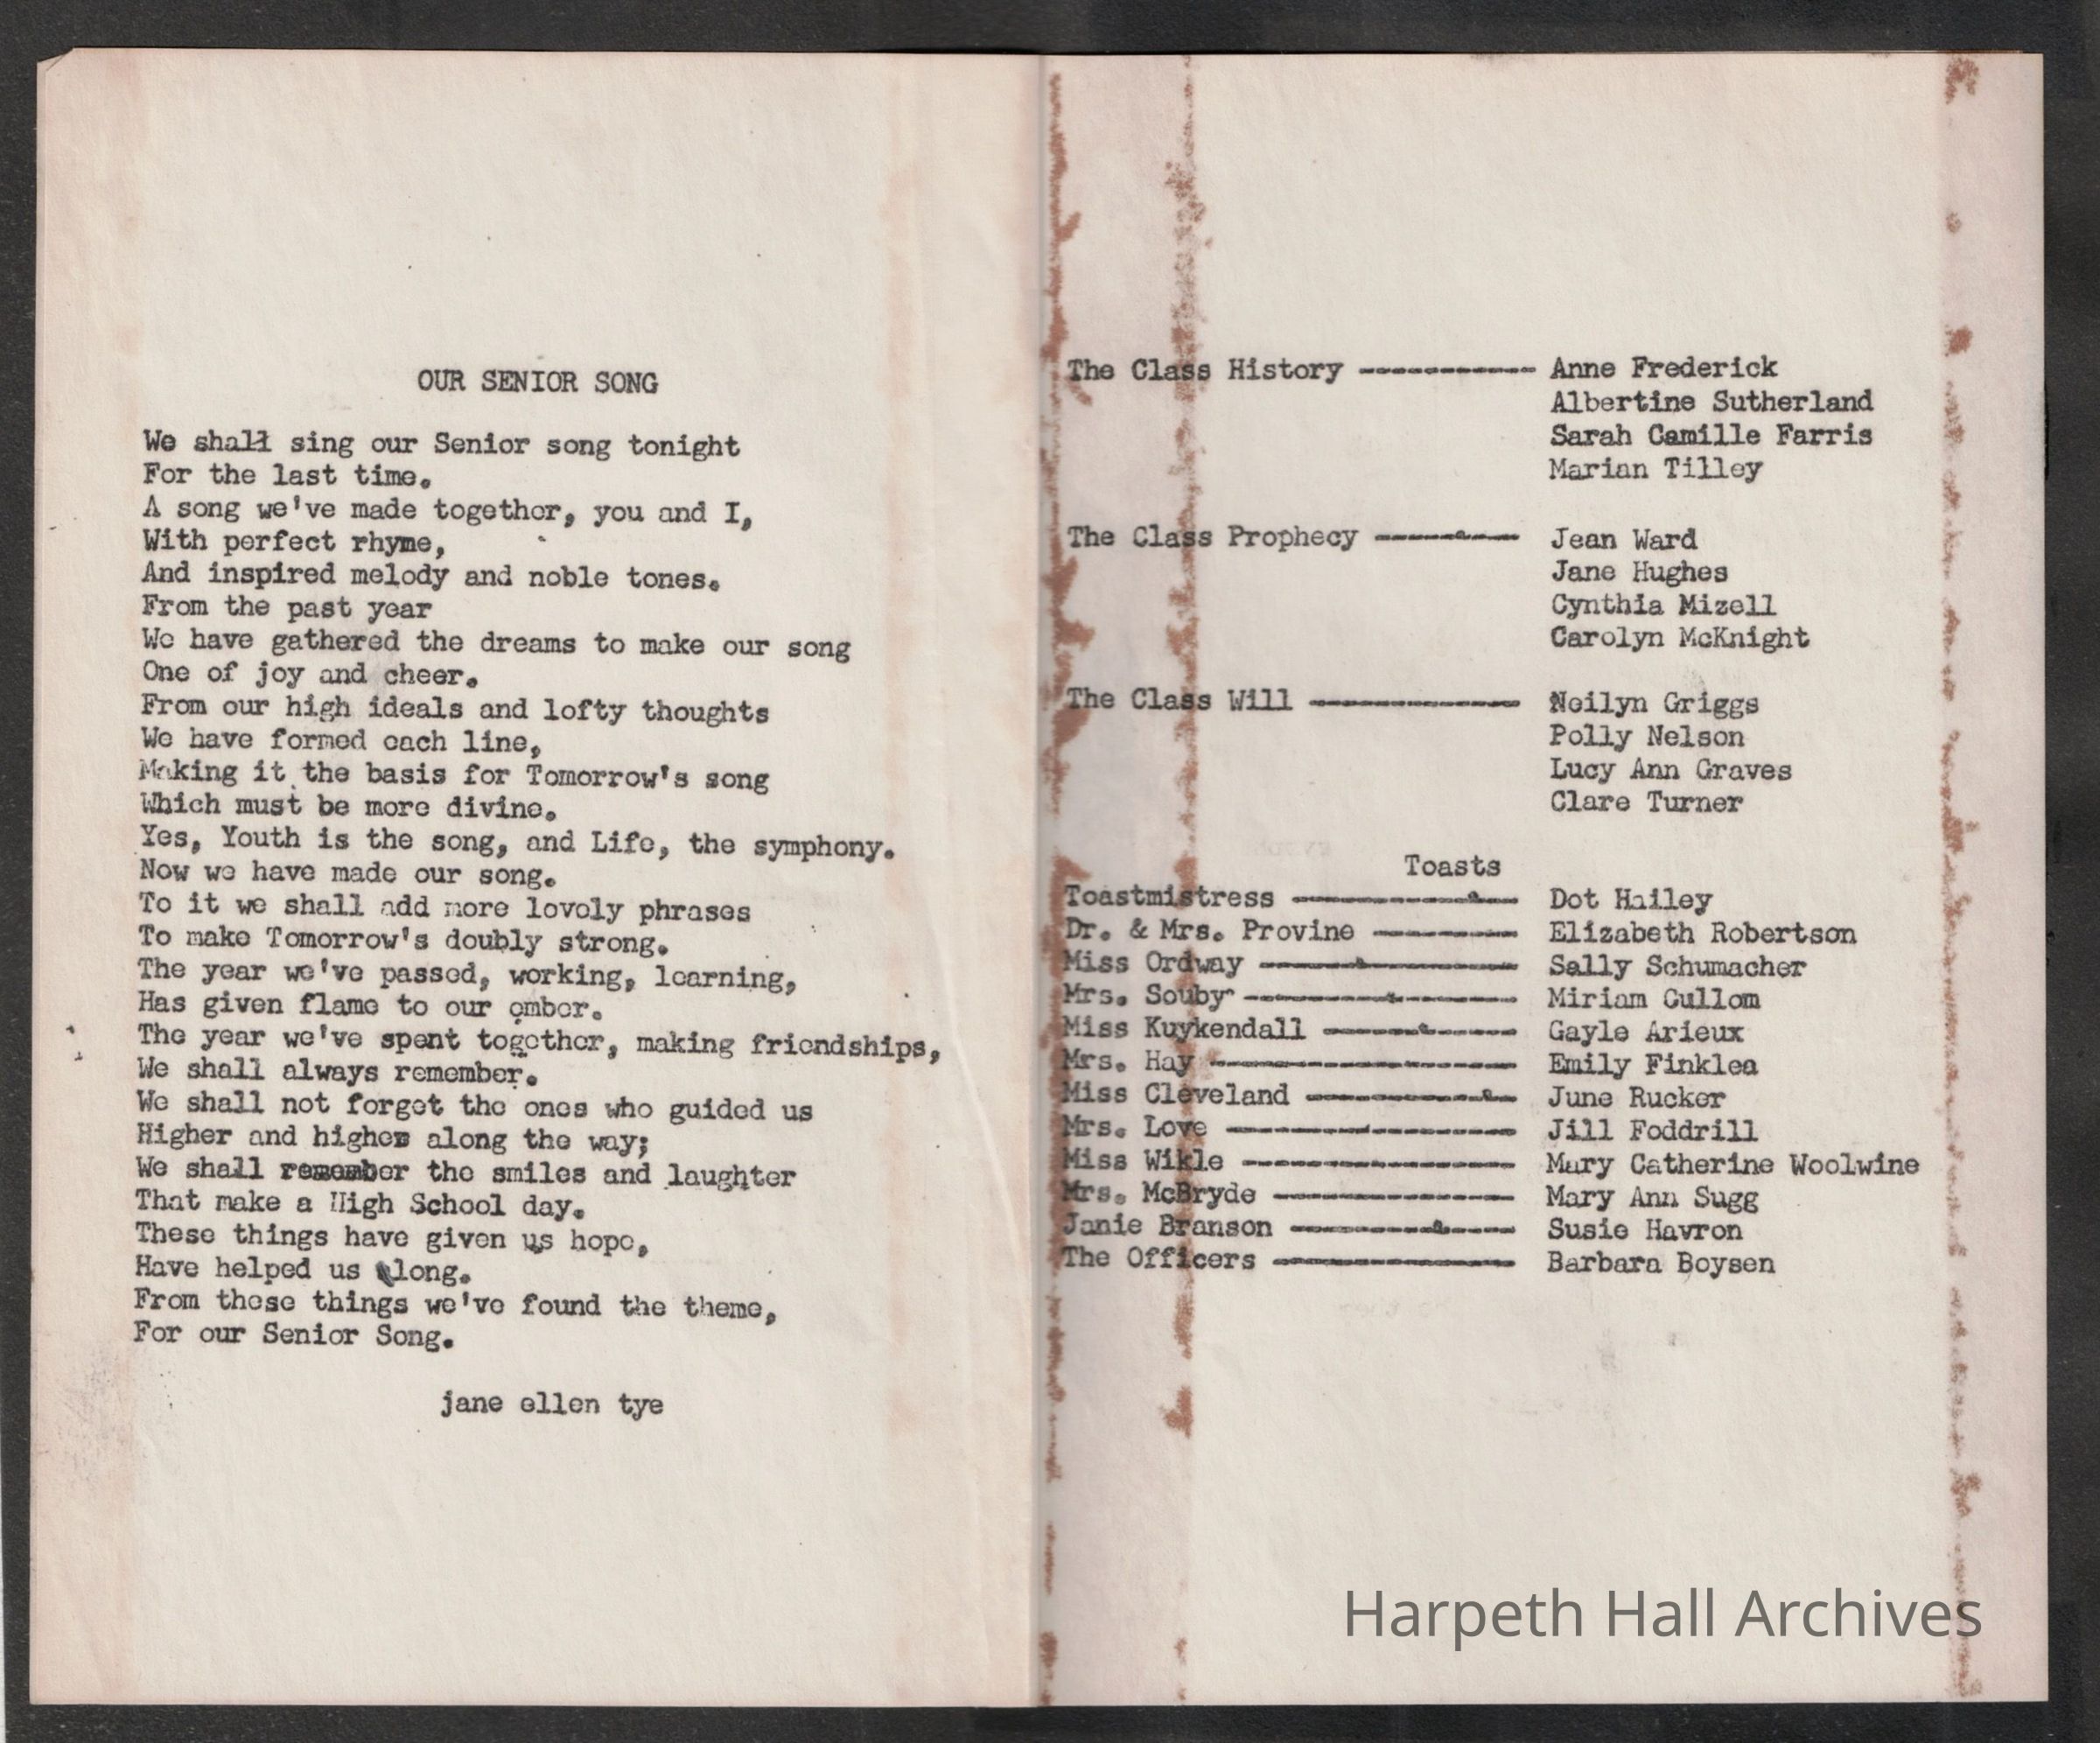 OUR SENIOR SONG
We shall sing our Senior song tonight
For the last time.
A song we've made together, you and I,
With perfect rhyme,
And inspired melody and noble tones.
From the past year
We have gathered the dreams to make our song
One of joy and cheer.
From our high ideals and lofty thoughts
We have formed each line,
Making it the basis for Tomorrow's song
Which must be more divine.
Yes, Youth is the song, and Life, the symphony.
Now we have made our song.
To it we shall add more lovely phrases
To make Tomorrow's doubly strong.
The year we've passed, working, learning,
Has given flame to our ember.
The year we've spent together, making friendships,
We shall always remember.
We shall not forget the ones who guided us
Higher and higher along the way;
We shall remember the smiles and laughter
That make a High School day.
These things have given us hope,
Have helped us along.
From these things we've found the theme,
For our Senior Song.
jane ellen tye
The Class History ----------- Anne Frederick
Albertine Sutherland
Sarah Camille Farris
Marian Tilley
The Class Prophecy --------- Jean Ward
Jane Hughes
Cynthia Mizell
Carolyn McKnight
The Class Will ------------- Neilyn Griggs
Polly Nelson
Lucy Ann Graves
Clare Turner
Toasts
Toastmistress -------------- Dot Hailey
Dr. & Mrs. Provine --------- Elizabeth Robertson
Miss Ordway ---------------- Sally Schumacher
Mrs. Souby ----------------- Miriam Cullom
Miss Kuykendall ------------ Gayle Arieux
Mrs. Hay ------------------- Emily Finklea
Miss Cleveland ------------- June Rucker
Mrs. Love ------------------ Jill Foddrill
Miss Wikle ----------------- Mary Catherine Woolwine
Mrs. McBryde --------------- Mary Ann Sugg
Janie Branson -------------- Susie Havron
The Officers --------------- Barbara Boysen
Harpeth Hall Archives